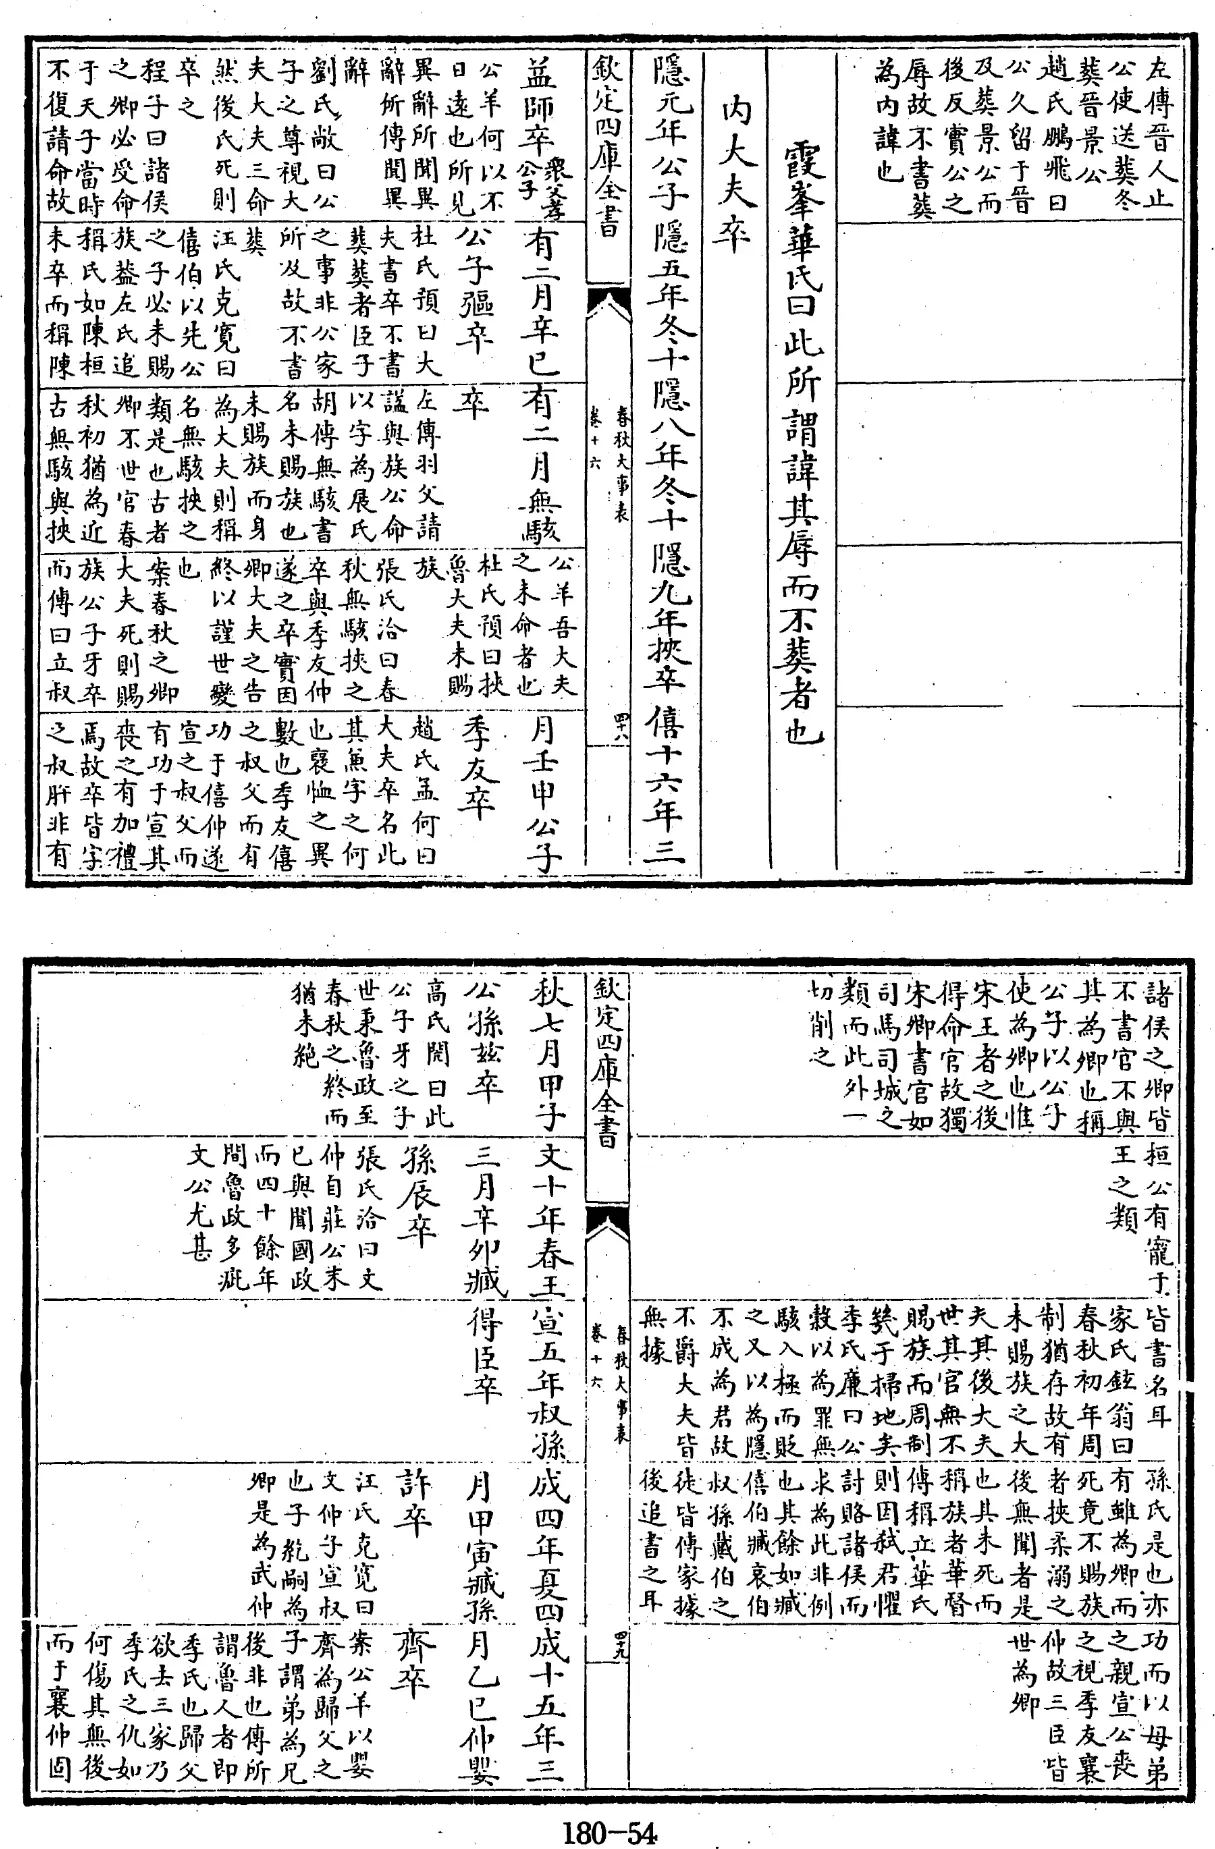 左傳晉人止
公使送葬冬
葬晉景公
趙氏鵬飛曰
公久留于晉
及葬景公而
後反實公之
辱故不書葬
為內諱也
霞峯華氏曰此所謂諱其辱而不葬者也
內大夫卒
隱元年公子
隱五年冬十
隱八年冬十
隱九年挾卒
僖十六年三
欽定四庫全書
春秋大事表
卷十六
四十八
益師卒
衆父孝
公子
公羊何以不
日遠也所見
異辭所聞異
辭所傳聞異
辭
劉氏敞曰公
子之尊視大
夫大夫三命
然後氏死則
卒之
程子曰諸侯
之卿必受命
于天子當時
不復請命故
有二月辛巳
公子彄卒
杜氏預曰大
夫書卒不書
葬葬者臣子
之事非公家
所及故不書
葬
汪氏克寬曰
僖伯以先公
之子必未賜
族葢左氏追
稱氏如陳桓
未卒而稱陳
有二月無駭
卒
左傳羽父請
諡與族公命
以字為展氏
胡傳無駭書
名未賜族也
未賜族而身
為大夫則稱
名無駭挾之
類是也古者
卿不世官春
秋初猶為近
古無駭與挾
公羊吾大夫
之未命者也
杜氏預曰挾
魯大夫未賜
族
張氏洽曰春
秋無駭挾之
卒與季友仲
遂之卒實因
卿大夫之告
終以謹世變
也
案春秋之卿
大夫死則賜
族公子牙卒
而傳曰立叔
月壬申公子
季友卒
趙氏孟何曰
大夫卒名此
其兼字之何
也襃恤之異
數也季友僖
之叔父而有
功于僖仲遂
宣之叔父而
有功于宣其
喪之有加禮
焉故卒皆字
之叔肸非有
諸侯之卿皆
不書官不與
其為卿也稱
公子以公子
使為卿也惟
宋王者之後
得命官故獨
宋卿書官如
司馬司城之
類而此外一
切削之
桓公有寵于
王之類
皆書名耳
家氏鉉翁曰
春秋初年周
制猶存故有
未賜族之大
夫其後大夫
世其官無不
賜族而周制
幾于掃地矣
季氏廉曰公
穀以為罪無
駭入極而貶
之又以為隱
不成為君故
不爵大夫皆
無據
孫氏是也亦
有雖為卿而
死竟不賜族
者挾柔溺之
後無聞者是
也其未死而
稱族者華督
傳稱立華氏
則因弑君懼
討賂諸侯而
求為此非例
也其餘如臧
僖伯臧哀伯
叔孫戴伯之
徒皆傳家據
後追書之耳
功而以母弟
之親宣公喪
之視季友襄
仲故三臣皆
世為卿
欽定四庫全書
春秋大事表
卷十六
四十九
秋七月甲子
公孫玆卒
高氏閌曰此
公子牙之子
世秉魯政至
春秋之終而
猶未絶
文十年春王
三月辛卯臧
孫辰卒
張氏洽曰文
仲自莊公末
已與聞國政
而四十餘年
間魯政多疵
文公尤甚
宣五年叔孫
得臣卒
成四年夏四
月甲寅臧孫
許卒
汪氏克寬曰
文仲子宣叔
也子紇嗣為
卿是為武仲
成十五年三
月乙巳仲嬰
齊卒
案公羊以嬰
齊為歸父之
子謂弟為兄
後非也傳所
謂魯人者即
季氏也歸父
欲去三家乃
季氏之仇如
何傷其無後
而于襄仲固
180-54